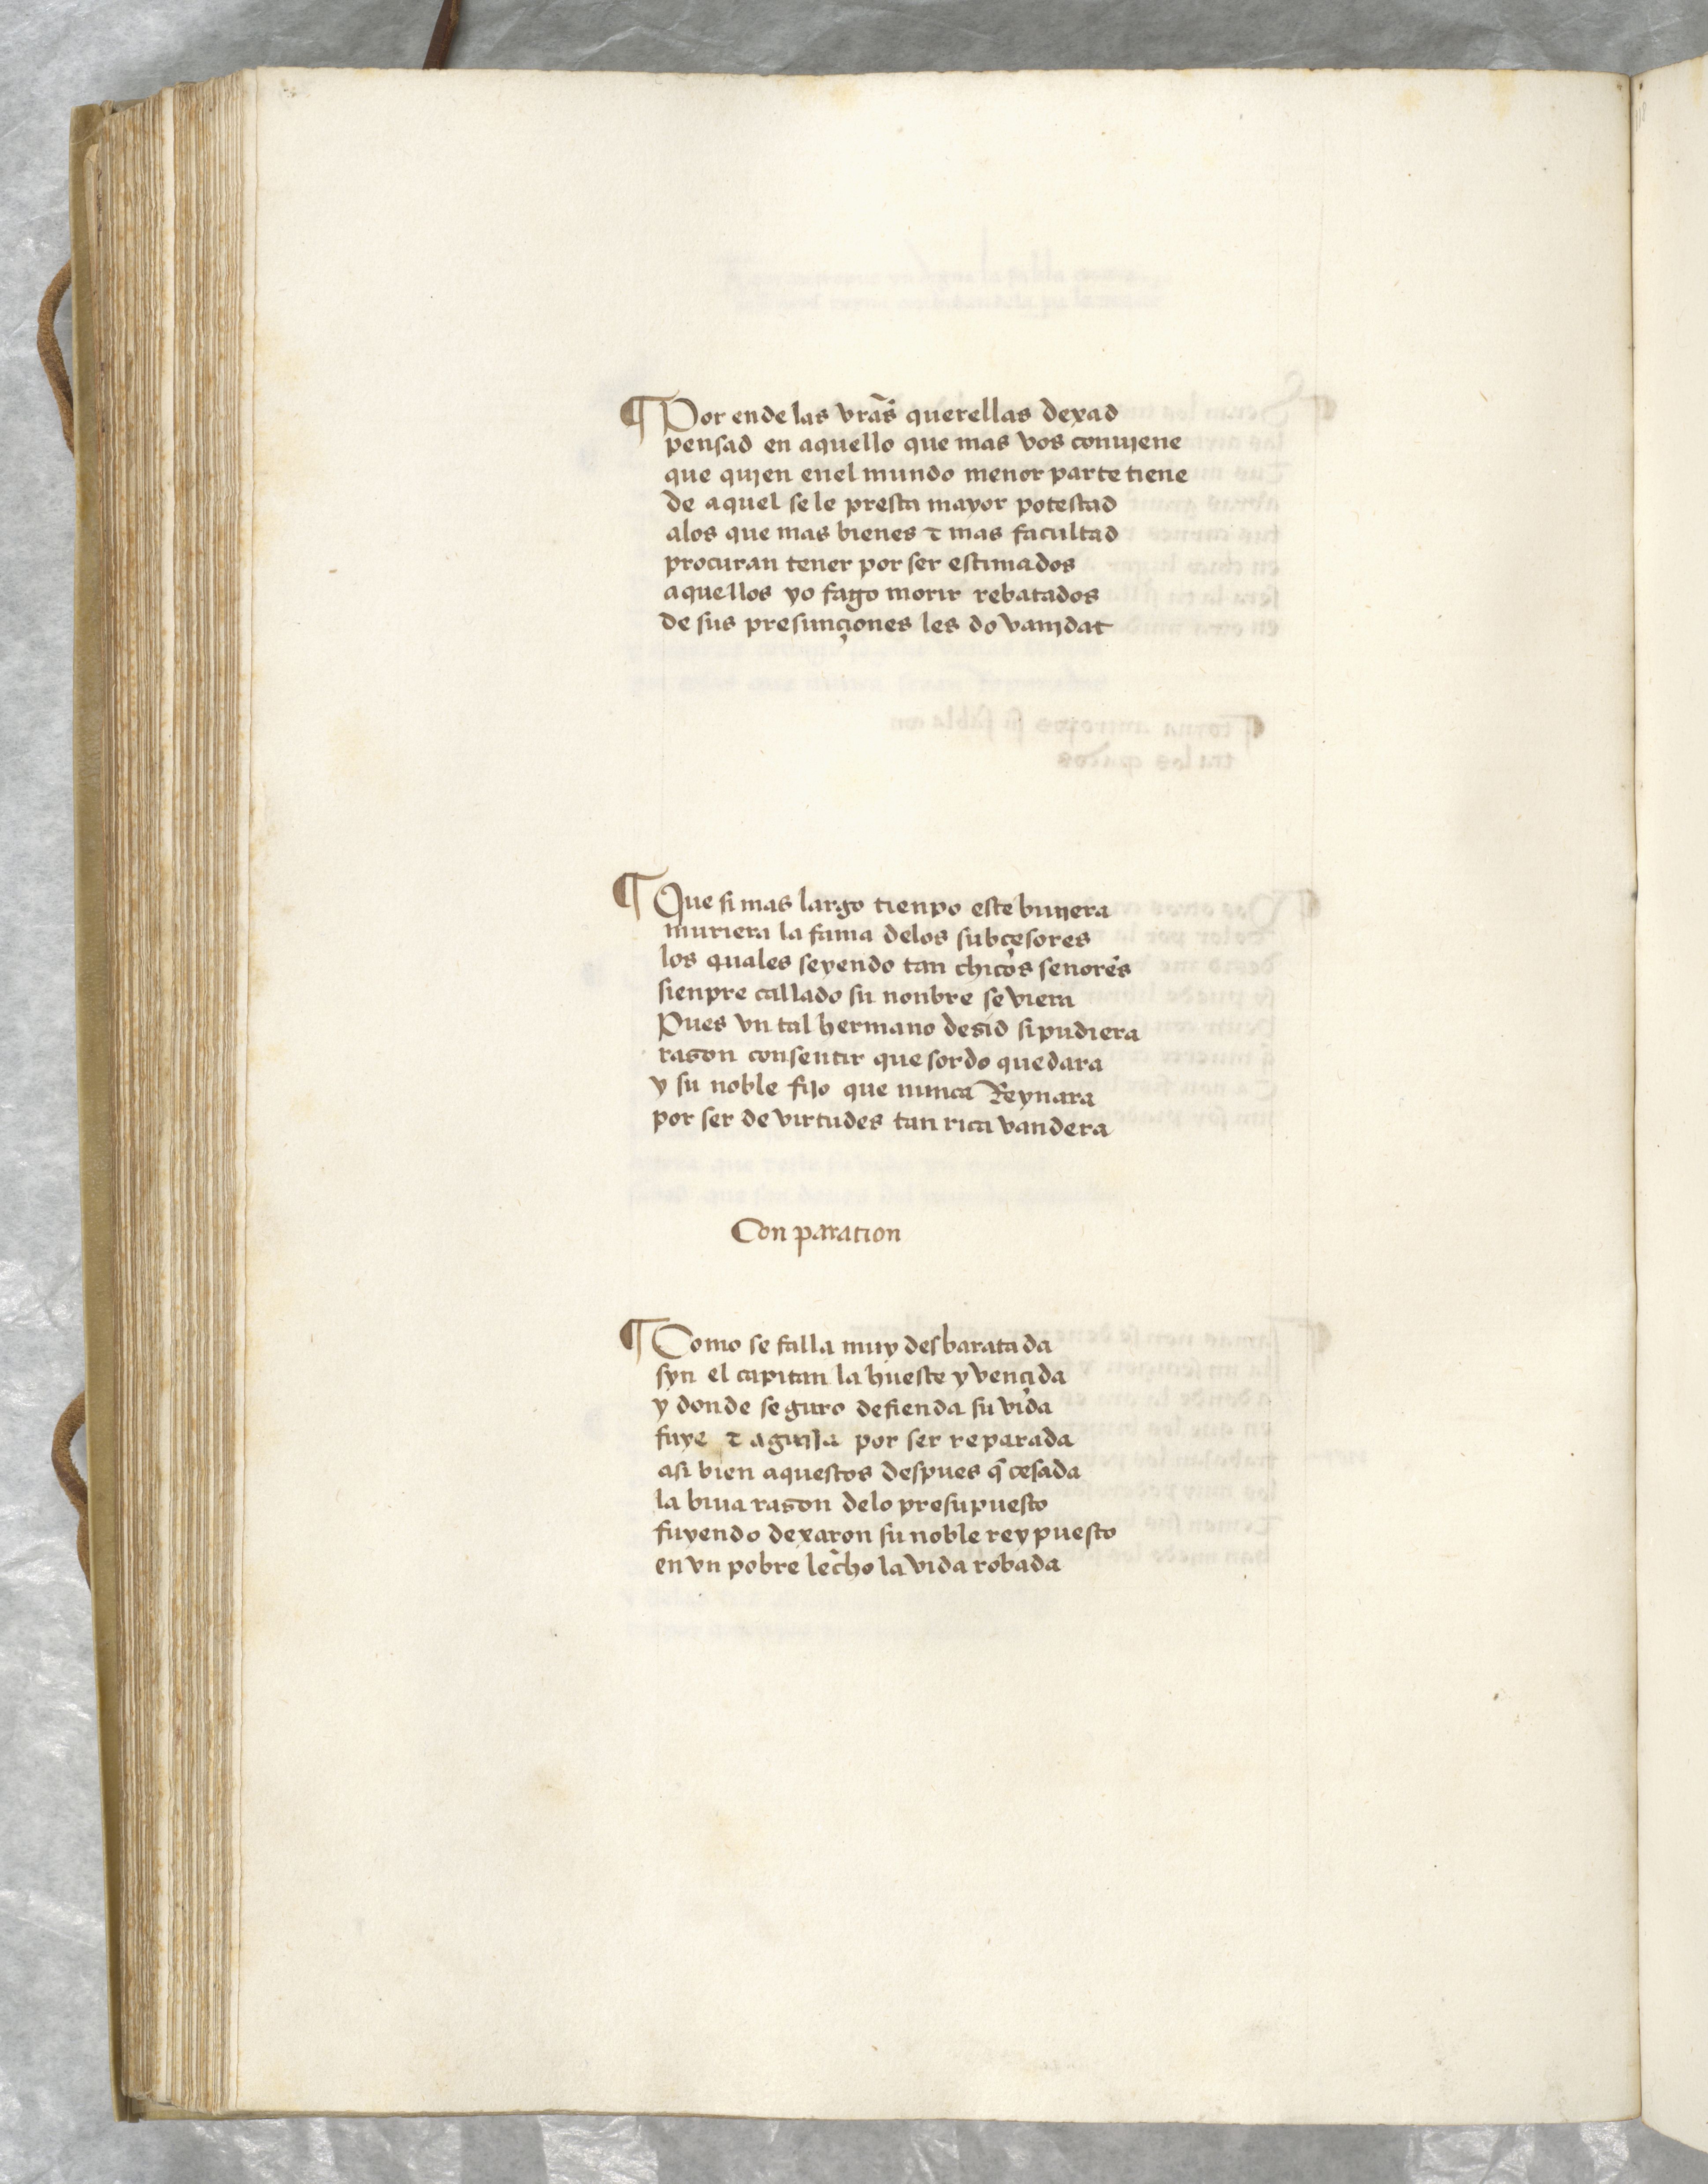 ¶ Por ende las vr̃as querellas dexad
pensad en aquello que mas vos conujene
que qujen enel mundo menor parte tiene
de aquel se le presta mayor potestad
alos que mas bienes τ mas facultad
procuran tener por ser estimados
aquellos yo fago morir rebatados
de sus presunçiones les do vanjdat
¶ Que si mas largo tienpo este biujera
muriera la fama delos subçesores
los quales seyendo tan chicos senores
sienpre callado su nonbre se viera
Pues vn tal hermano desid si pudiera
rason consentir que sordo quedara
y su noble fijo que nunca Reynara
por ser de virtudes tan rica vandera
Conparation
¶ Como se falla muy desbaratada
syn el capitan la hueste y vençida
y donde seguro defienda su vida
fuye τ aguija por ser reparada
asi bien aquestos despues q̃ cesada
la biua rason delo presupuesto
fuyendo dexaron su noble rey puesto
en vn pobre lecho la vida robada